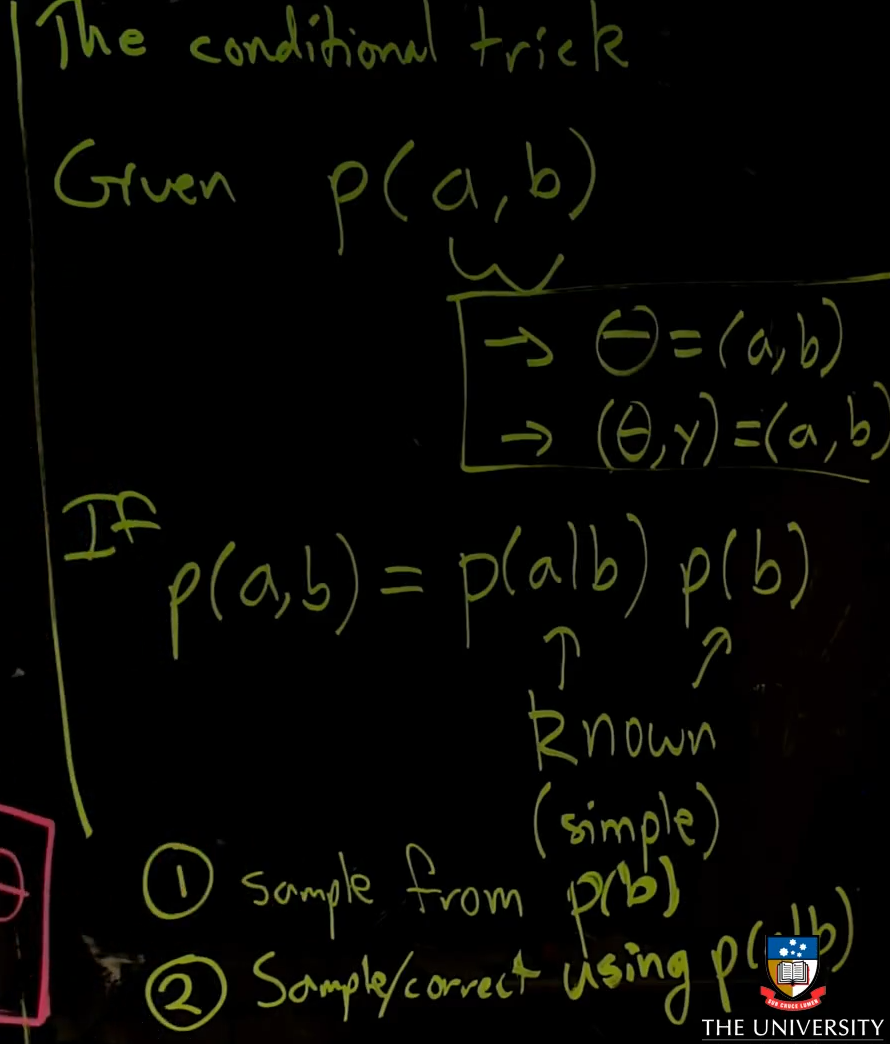 The conditional trick
Given p(a,b)
→ θ=(a,b)
→ (θ,y)=(a,b)
If
p(a,b) = p(a|b) p(b)
↑ ↗
Known
(simple)
① sample from p(b)
② Sample/correct using p(a|b)
θ
SUB CRUCE LUMEN
THE UNIVERSITY